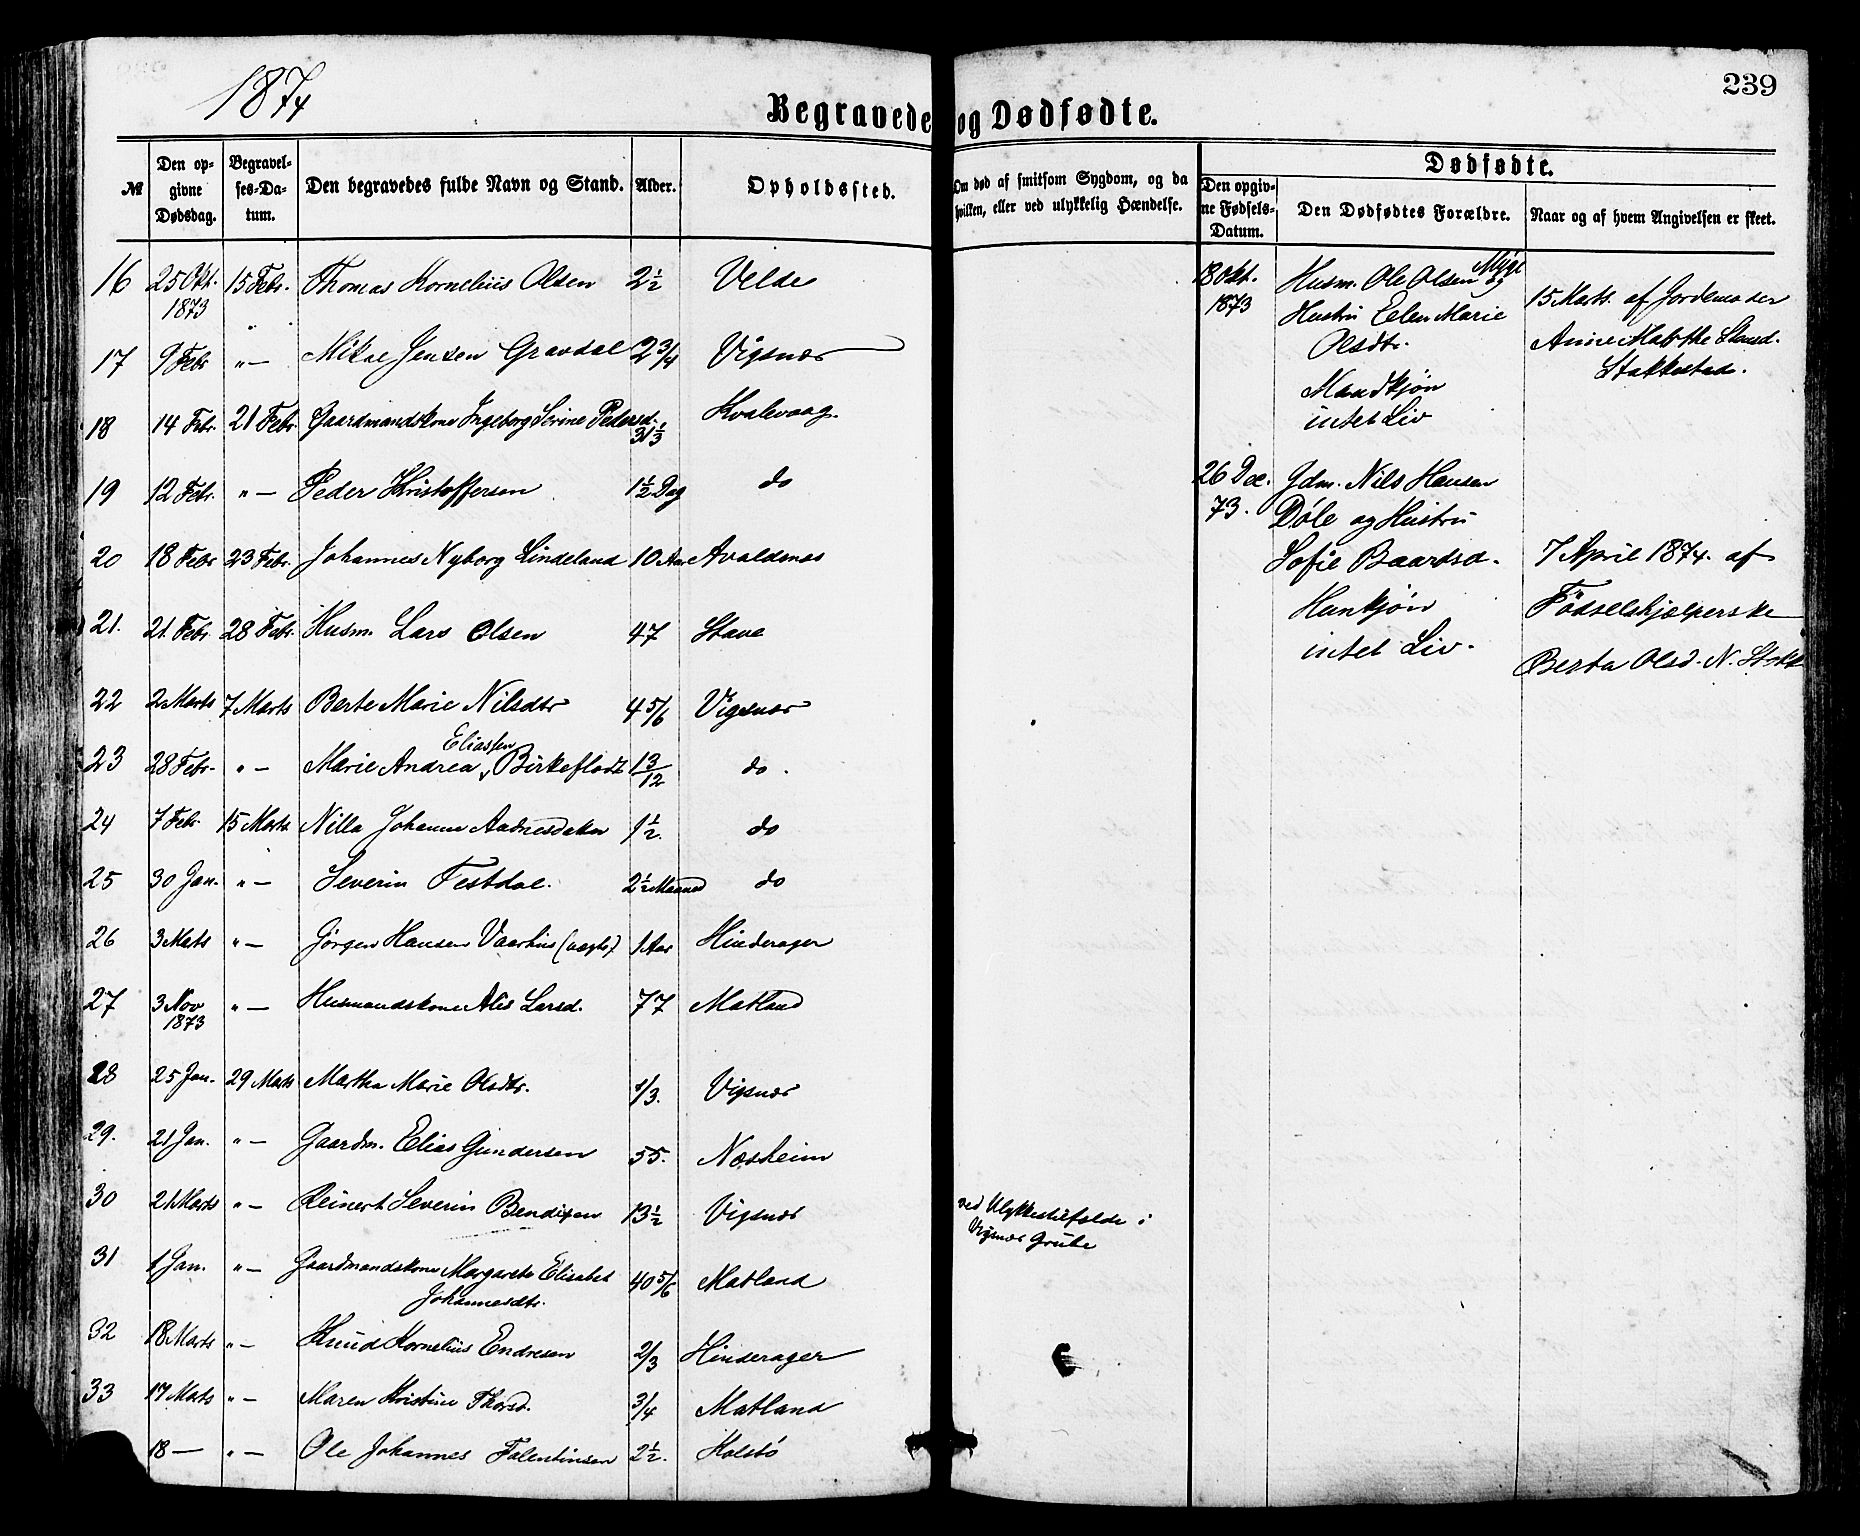 1874
239
Begravede og Dødfødte.
№
Den op-
givne
Dødsdag.
Begravel-
ses-Da-
tum.
Den begravedes fulde Navn og Stand.
Alder.
Opholdssted.
Om død af smitsom Sygdom, og da
hvilken, eller ved ulykkelig Hændelse.
Dødfødte.
Den opgiv-
ne Fødsels-
Datum.
Den Dødfødtes Forældre.
Naar og af hvem Angivelsen er skeet.
16 25 Okt. 1873 15 Febr. Thomas Kornelius Olsen 2½ Velde
17 9 Febr " — Mikal Jensen Gravdal 2 3/4 Vigsnæs
18 14 Febr. 21 Febr. Gaardmandskone Ingeborg Serine Pedersd. 31⅓ Kvalevaag.
19 12 Febr. " — Peder Kristoffersen 1½ Dag do
20 18 Febr 23 Febr. Johannes Nyborg Lindeland 10 Aar Avaldsnes
21. 21. Febr. 28 Febr. Husm. Lars Olsen 47 Stave
22 2 Marts 7 Marts Berte Marie Nilsdtr 4 5/6 Vigsnæs
23 28 Febr. " — Marie Andrea Eliassen Birkeflodt 13/12 do.
24 7 Febr 15 Marts Nilla Johanne 1½. do
25 30 Jan. " — Severin Testdal. 2½ Maaned do
26 3 Mats " — Jørgen Hansen Vaarhus 1 Aar Hinderager
27 3 Nov 1873 " — Husmandskone Alis Larsd. 77 Matland
28 25 Jan. 29 Marts Martha Marie Olsdtr. 1/3. Vigsnæs
29. 21 Jan. " — Gaardm. Elias Gundersen 55. Næsheim
30 21 Marts " — Reinert Severin Bendixen 13½ Vigsnæs ved Ulykkestilfælde i
Vigsnæs Grube
31 1 Jan. " — Gaardmandskone Margarete Elisabet
Johannesdtr. 40 5/6 Matland
32 18 Marts " — Knud Kornelius Endresen 2/3 Hinderager
33 17 Mats " — Maren Kristine Thorsd. 3/4 Matland
18 — " — Ole Johannes Falentinsen 2½. Kolstö
18 Okt.
1873
Husm. Ole Olsen Myge og
Hustru Elen Marie
Olsdtr.
Mandkjøn
intet Liv
15 Marts af Jordemoder
Anne Malothe
Stakkestad.
26 Dec.
73.
Gdm. Nils Hansen
Døle og Hustru
Sofie Baardsd.
Hunkjøn
intet Liv.
7 April 1874. af
Födselshjælperske
Berta Olsd. N.